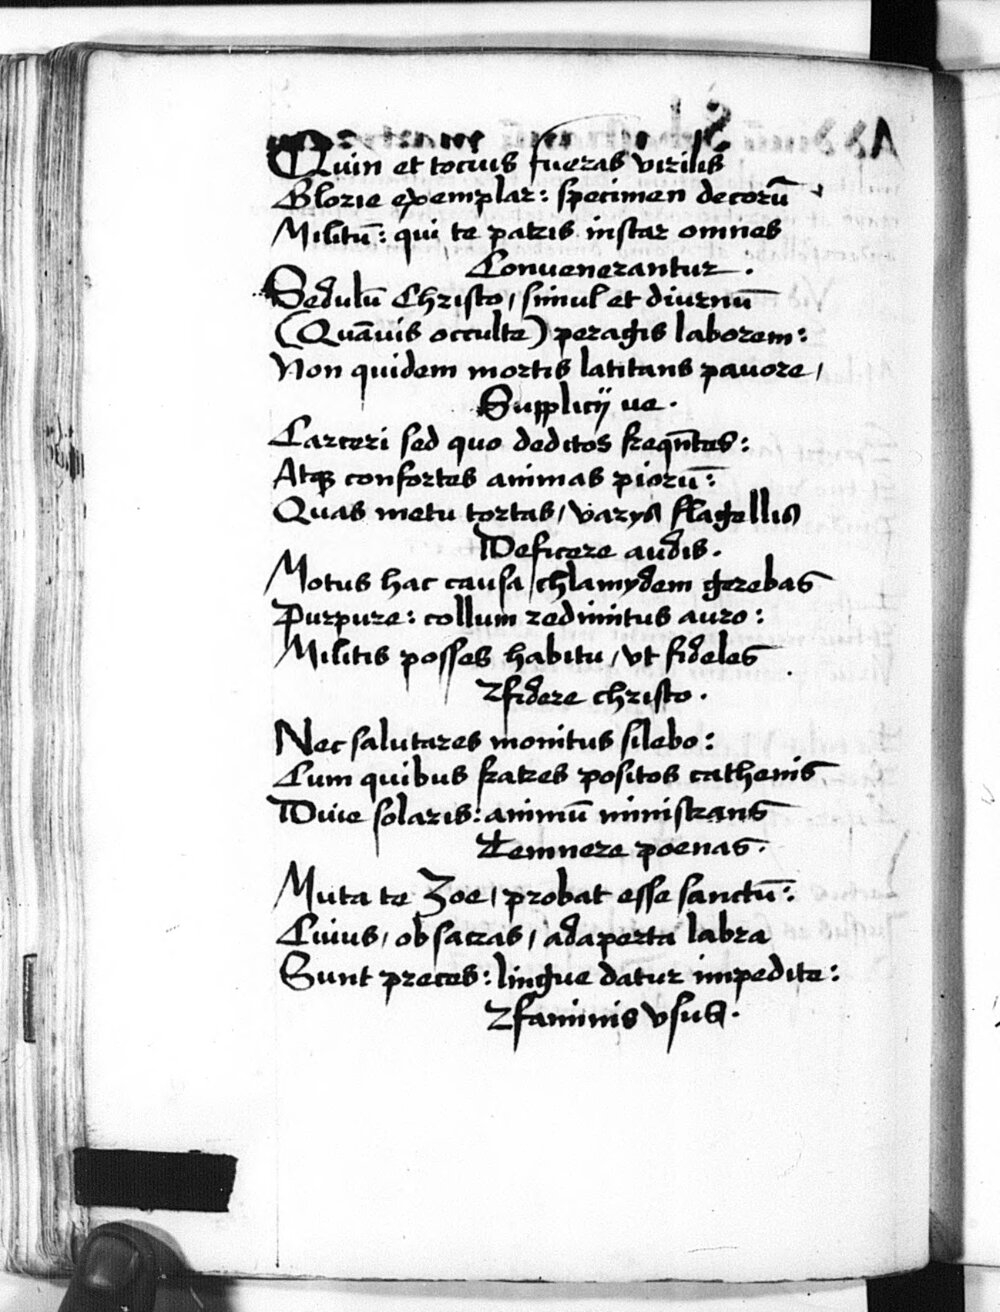 Quin et tocius fueras virilis
Glorie exemplar: specimen decorū
Militū: qui te patris instar omnes
Convenerantur.
Sedulū Christo, simul et diurnū
(Quāvis occulte) peragis laborem:
Non quidem mortis latitans pavore,
Supplicij ve.
Carceri sed quo deditos freqn̄tes:
Atqꝫ confortes animas piorū:
Quas metu tortas, varys flagellis
Deficere audis.
Motus hac causa, chlamydem gerebas
Purpure: collum redimitus auro:
Militis posses habitu, vt fideles
Ꝯfidere christo.
Nec salutares monitus silebo:
Cum quibus fratres positos cathenis
Duie solaris: animū ministrans
Temnere poenas.
Muta te Zoe, probat esse sanctū:
Cuius, ob sacras, adaperta labra
Sunt preces: lingue datur impedite:
Ꝯfaminis vsus.